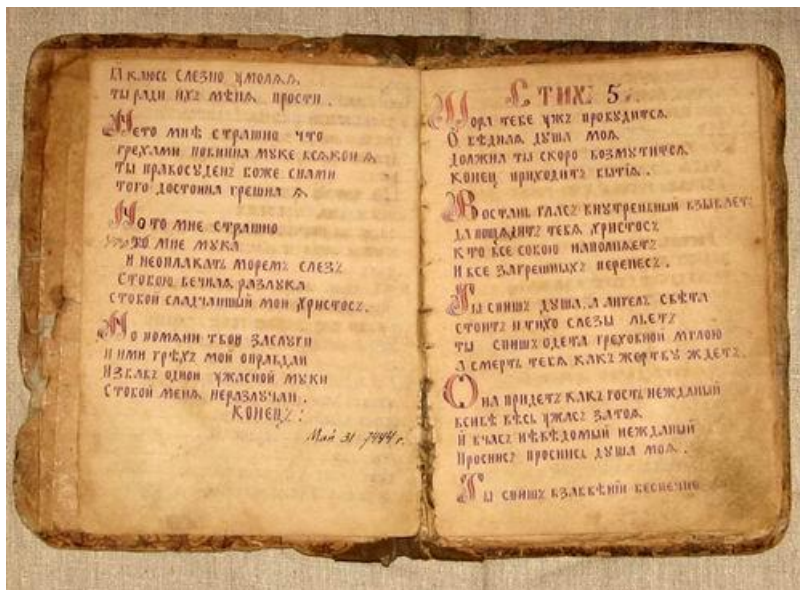 И каюсь слезно умоляя
ты ради ихъ мѣня прости.
Нето мнѣ страшно что
грехами повинна муке всякой я
ты правосуденъ боже снами
того достойна грешна я
Но то мне страшно
то мне мука
и неоплакать моремъ слезъ
стобою вечная разлука
стобой сладчайшый мой христосъ.
Но помяни твои заслуги
и ими грѣхъ мой оправдай
избавь одной ужасной муки
стобой меня неразлучай.
КОНЕЦЪ:
Май 31 7444 г.
Стих 5.
Пора тебе ужъ пробудится
О бѣдная душа моя
должна ты скоро возмутится
конец приходитъ бытія.
Востань гласъ внутренный взываетъ
да пощадитъ тебя христосъ
кто все собою наполняетъ
и все загрешныхъ перенесъ.
Ты спишь душа, а ангелъ свѣта
стоитъ и тихо слезы льетъ
ты спишь одета греховной мглою
а смерть тебя какъ жертву ждетъ.
Она придетъ какъ гость нежданый
всивѣ весь ужасъ затоя
и вчасъ невѣдомый нежданый
проснись проснись душа моя.
Ты спишь взабвѣніи беспечно